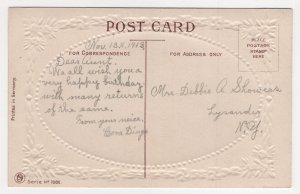 POST CARD
Nov. 1911, 1913
FOR CORRESPONDENCE
FOR ADDRESS ONLY
PLACE
POSTAGE
STAMP
HERE
Dear Aunt.
We all wish you a
very happy birthday
with many returns
of the same.
From your niece.
Cora
Mrs Debbie A
Lysander
N.Y.
Printed in Germany.
Serie No